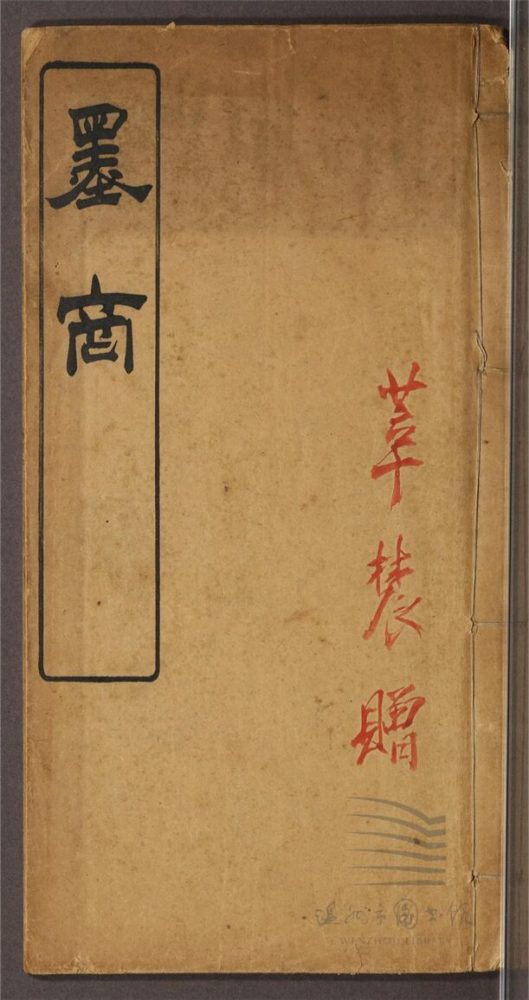 墨商
贈
温州市圖書館
WENZHOU LIBRARY